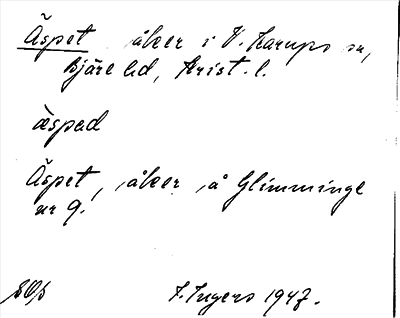 Äspet åker i V. Karups sn,
Bjäre hd, Krist. l.
äspad
Äspet, åker å Glimminge
nr 9.
I. Ingers 1947.